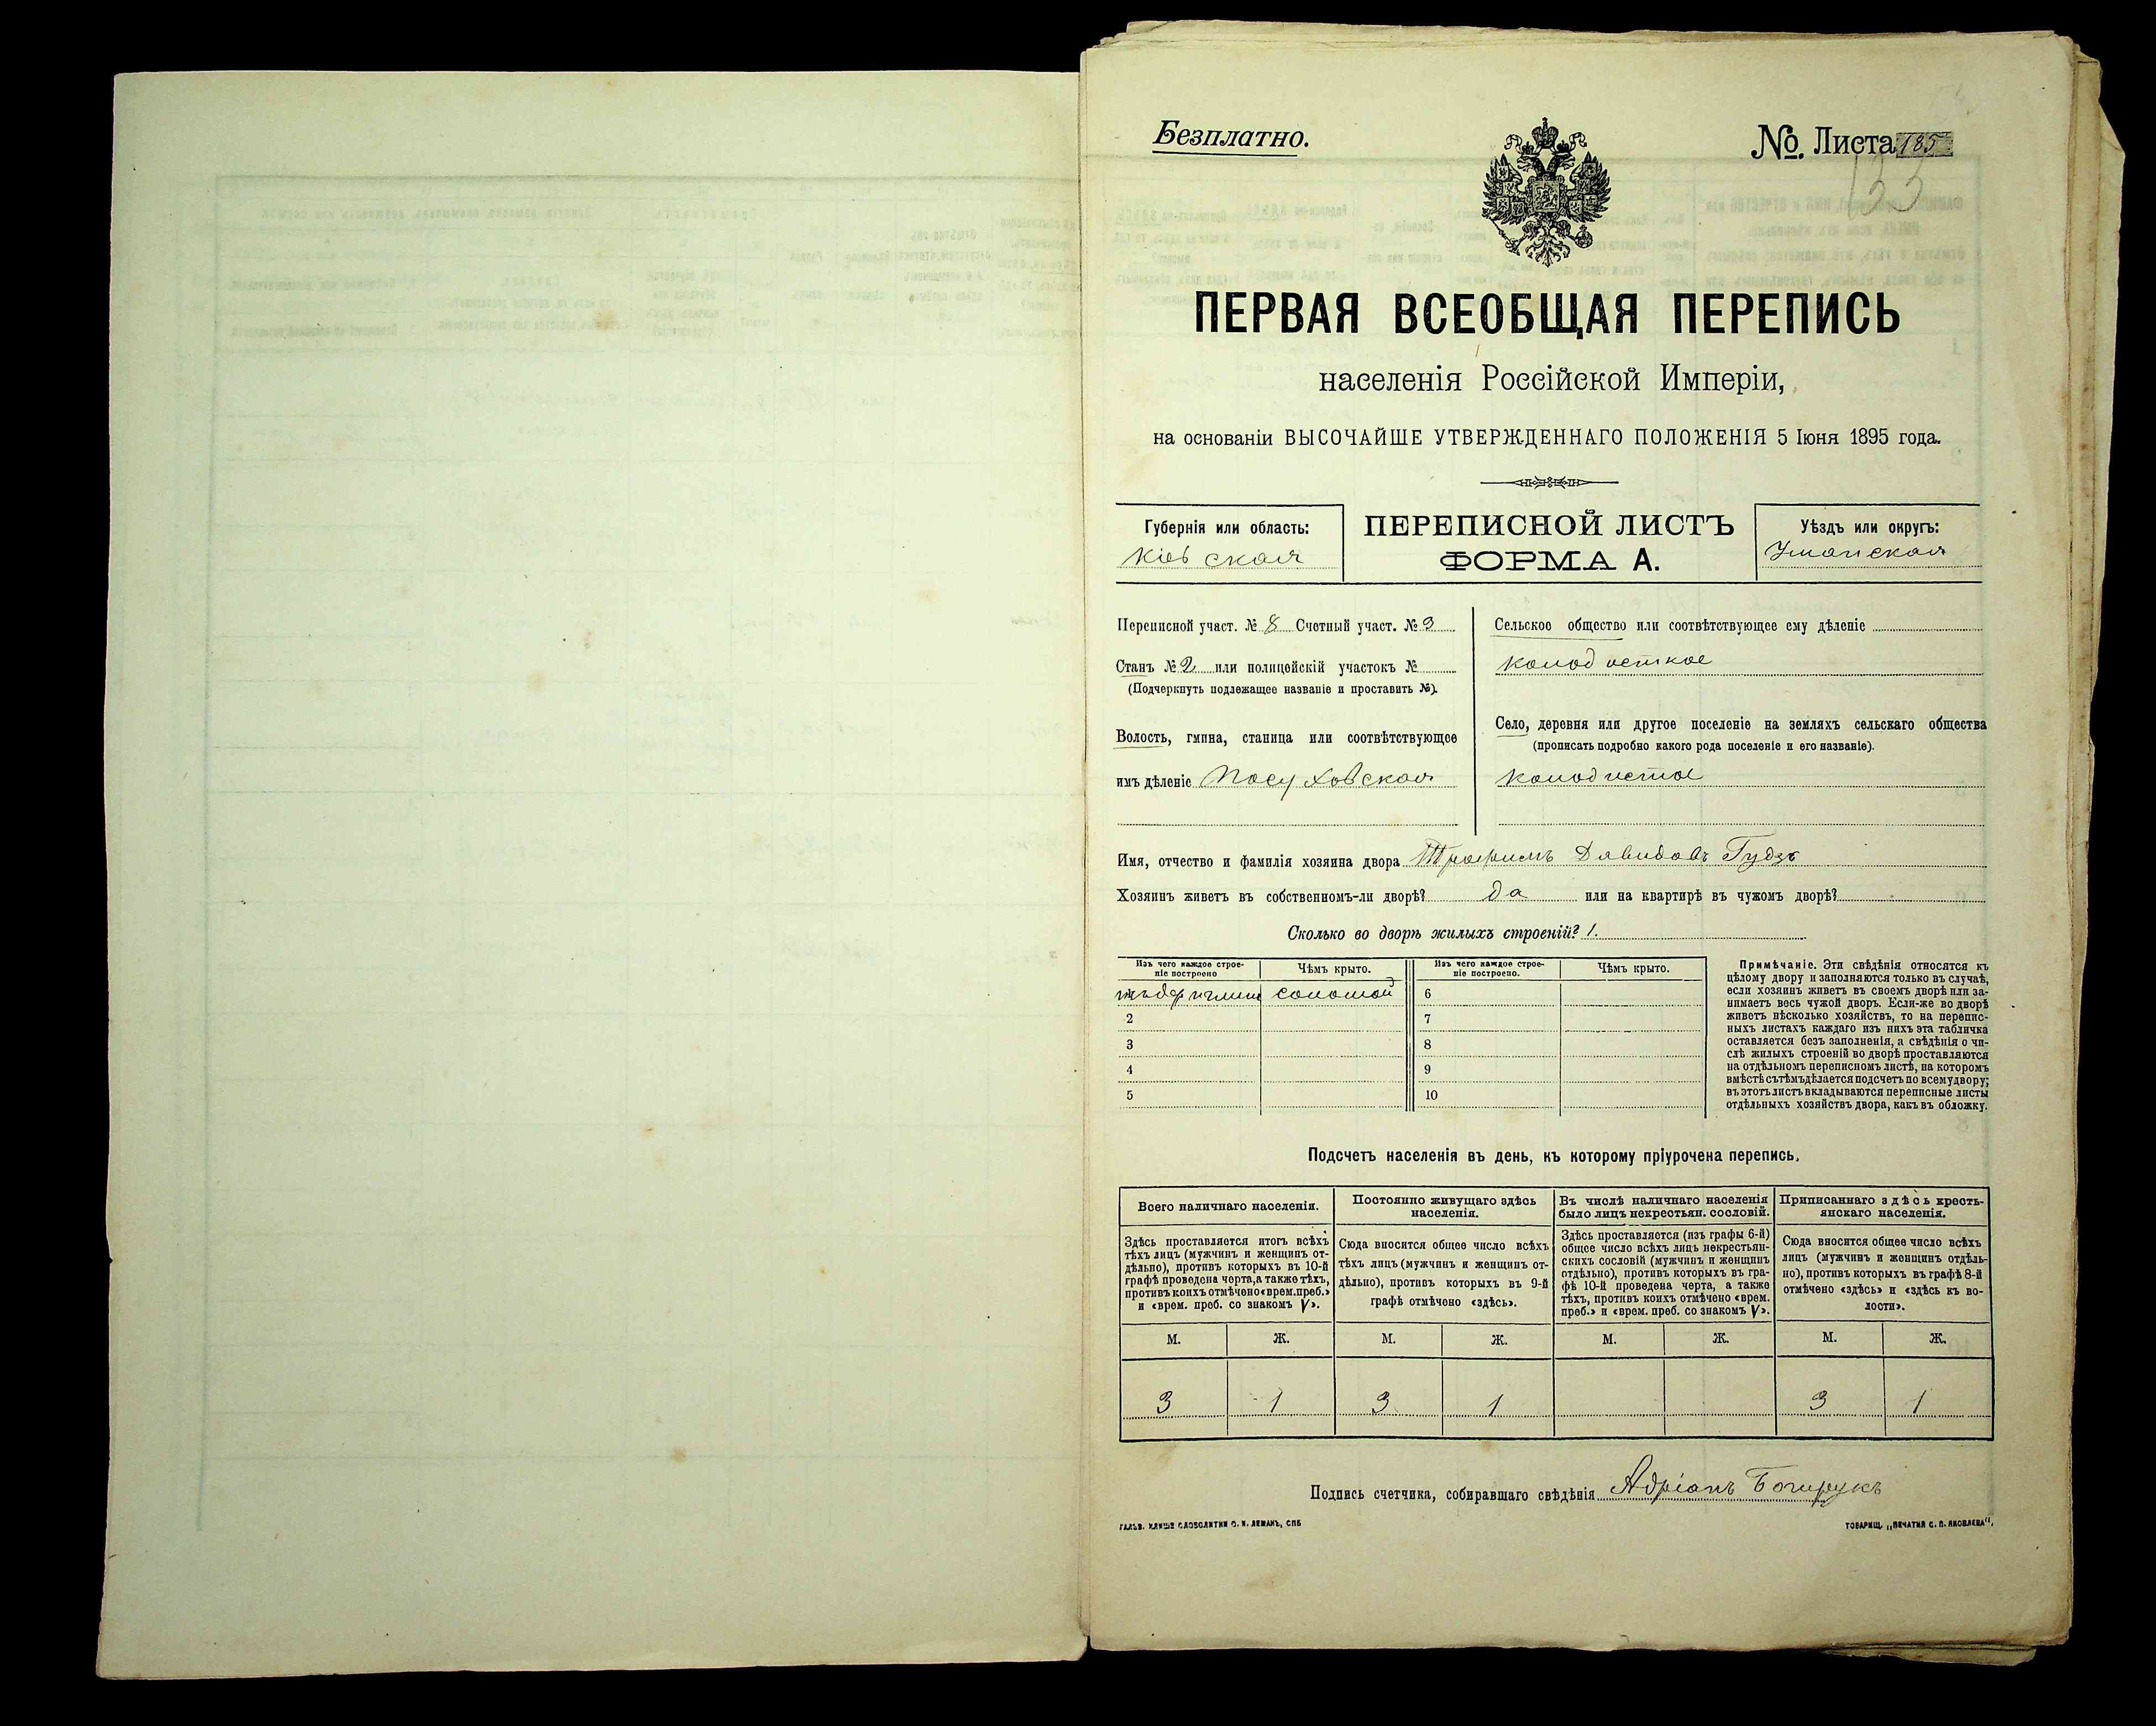 Безплатно.
№. Листа 185
133
ПЕРВАЯ ВСЕОБЩАЯ ПЕРЕПИСЬ
населенія Россійской Имперіи,
на основаніи ВЫСОЧАЙШЕ УТВЕРЖДЕННАГО ПОЛОЖЕНІЯ 5 Іюня 1895 года.
Губернія или область:
Кіевская
ПЕРЕПИСНОЙ ЛИСТЪ
ФОРМА А.
Уѣздъ или округъ:
Уманская
Переписной участ. № 8 Счетный участ. № 3
Станъ № 2 или полицейскій участокъ №
(Подчеркнуть подлежащее названіе и проставить №).
Волость, гмина, станица или соотвѣтствующее
имъ дѣленіе Посуховская
Сельское общество или соотвѣтствующее ему дѣленіе
Колодисткое
Село, деревня или другое поселеніе на земляхъ сельскаго общества
(прописать подробно какого рода поселеніе и его названіе).
Колодистое
Имя, отчество и фамилія хозяина двора Трофимъ Давидовъ Гудзь
Хозяинъ живетъ въ собственномъ-ли дворѣ? да или на квартирѣ въ чужомъ дворѣ?
Сколько во дворѣ жилыхъ строеній? 1.
Изъ чего каждое строе-
ніе построено
Чѣмъ крыто.
Изъ чего каждое строе-
ніе построено.
Чѣмъ крыто.
соломой
6
2
7
3
8
4
9
5
10
Примѣчаніе. Эти свѣдѣнія относятся къ
цѣлому двору и заполняются только въ случаѣ,
если хозяинъ живетъ въ своемъ дворѣ или за-
нимаетъ весь чужой дворъ. Если-же во дворѣ
живетъ нѣсколько хозяйствъ, то на перепис-
ныхъ листахъ каждаго изъ нихъ эта табличка
оставляется безъ заполненія, а свѣдѣнія о чи-
слѣ жилыхъ строеній во дворѣ проставляются
на отдѣльномъ переписномъ листѣ, на которомъ
вмѣстѣ съ тѣмъ дѣлается подсчетъ по всему двору;
въ этотъ листъ вкладываются переписные листы
отдѣльныхъ хозяйствъ двора, какъ въ обложку.
Подсчетъ населенія въ день, къ которому пріурочена перепись.
Всего наличнаго населенія.
Здѣсь проставляется итогъ всѣхъ
тѣхъ лицъ (мужчинъ и женщинъ от-
дѣльно), противъ которыхъ въ 10-й
графѣ проведена черта, а также тѣхъ,
противъ коихъ отмѣчено «врем. преб.»
и «врем. преб. со знакомъ V».
Постоянно живущаго здѣсь
населенія.
Сюда вносится общее число всѣхъ
тѣхъ лицъ (мужчинъ и женщинъ от-
дѣльно), противъ которыхъ въ 9-й
графѣ отмѣчено «здѣсь».
Въ числѣ наличнаго населенія
было лицъ некрестьян. сословій.
Здѣсь проставляется (изъ графы 6-й)
общее число всѣхъ лицъ некрестьян-
скихъ сословій (мужчинъ и женщинъ
отдѣльно), противъ которыхъ въ гра-
фѣ 10-й проведена черта, а также
тѣхъ, противъ коихъ отмѣчено «врем.
преб.» и «врем. преб. со знакомъ V».
Приписаннаго здѣсь кресть-
янскаго населенія.
Сюда вносится общее число всѣхъ
лицъ (мужчинъ и женщинъ отдѣль-
но), противъ которыхъ въ графѣ 8-й
отмѣчено «здѣсь» и «здѣсь къ во-
лости».
М. Ж. М. Ж. М. Ж. М. Ж.
3 1 3 1 3 1
Подпись счетчика, собиравшаго свѣдѣнія Адріанъ
ГАЛЬВ. КЛИШЕ СЛОВОЛИТНИ О. И. ЛЕМАНЪ, СПБ
ТОВАРИЩ. „ПЕЧАТНЯ С. П. ЯКОВЛЕВА“.